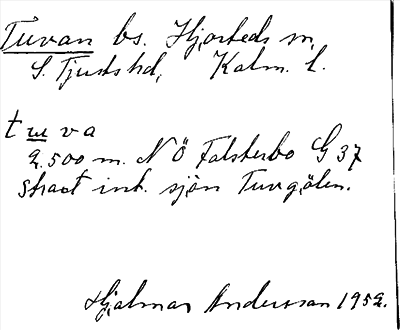 Tuvan bs. Hjorteds sn,
S. Tjusts hd, Kalm. l.
tuva
2.500 m. NÖ Falsterbo G 37
strax int. sjön Tuvgölen.
Hjalmar Andersson 1952.